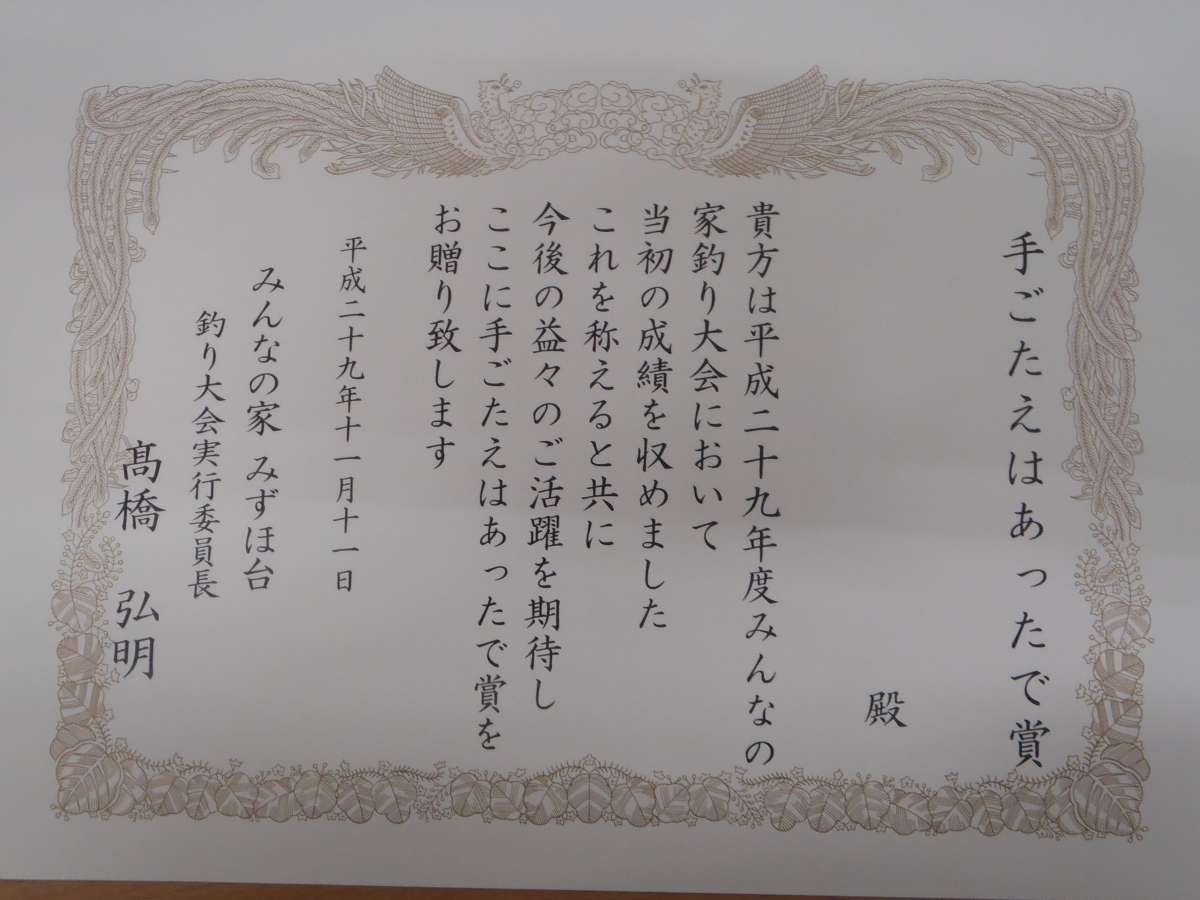 手ごたえはあったで賞
殿
貴方は平成二十九年度みんなの
家釣り大会において
当初の成績を収めました
これを称えると共に
今後の益々のご活躍を期待し
ここに手ごたえはあったで賞を
お贈り致します
平成二十九年十一月十一日
みんなの家 みずほ台
釣り大会実行委員長
髙橋 弘明